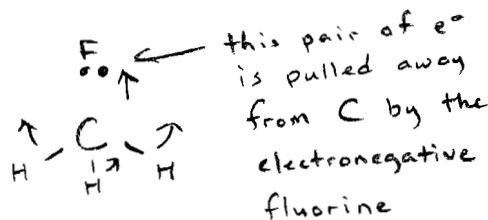 F
this pair of e⁻
is pulled away
from C by the
electronegative
fluorine
C
H H H